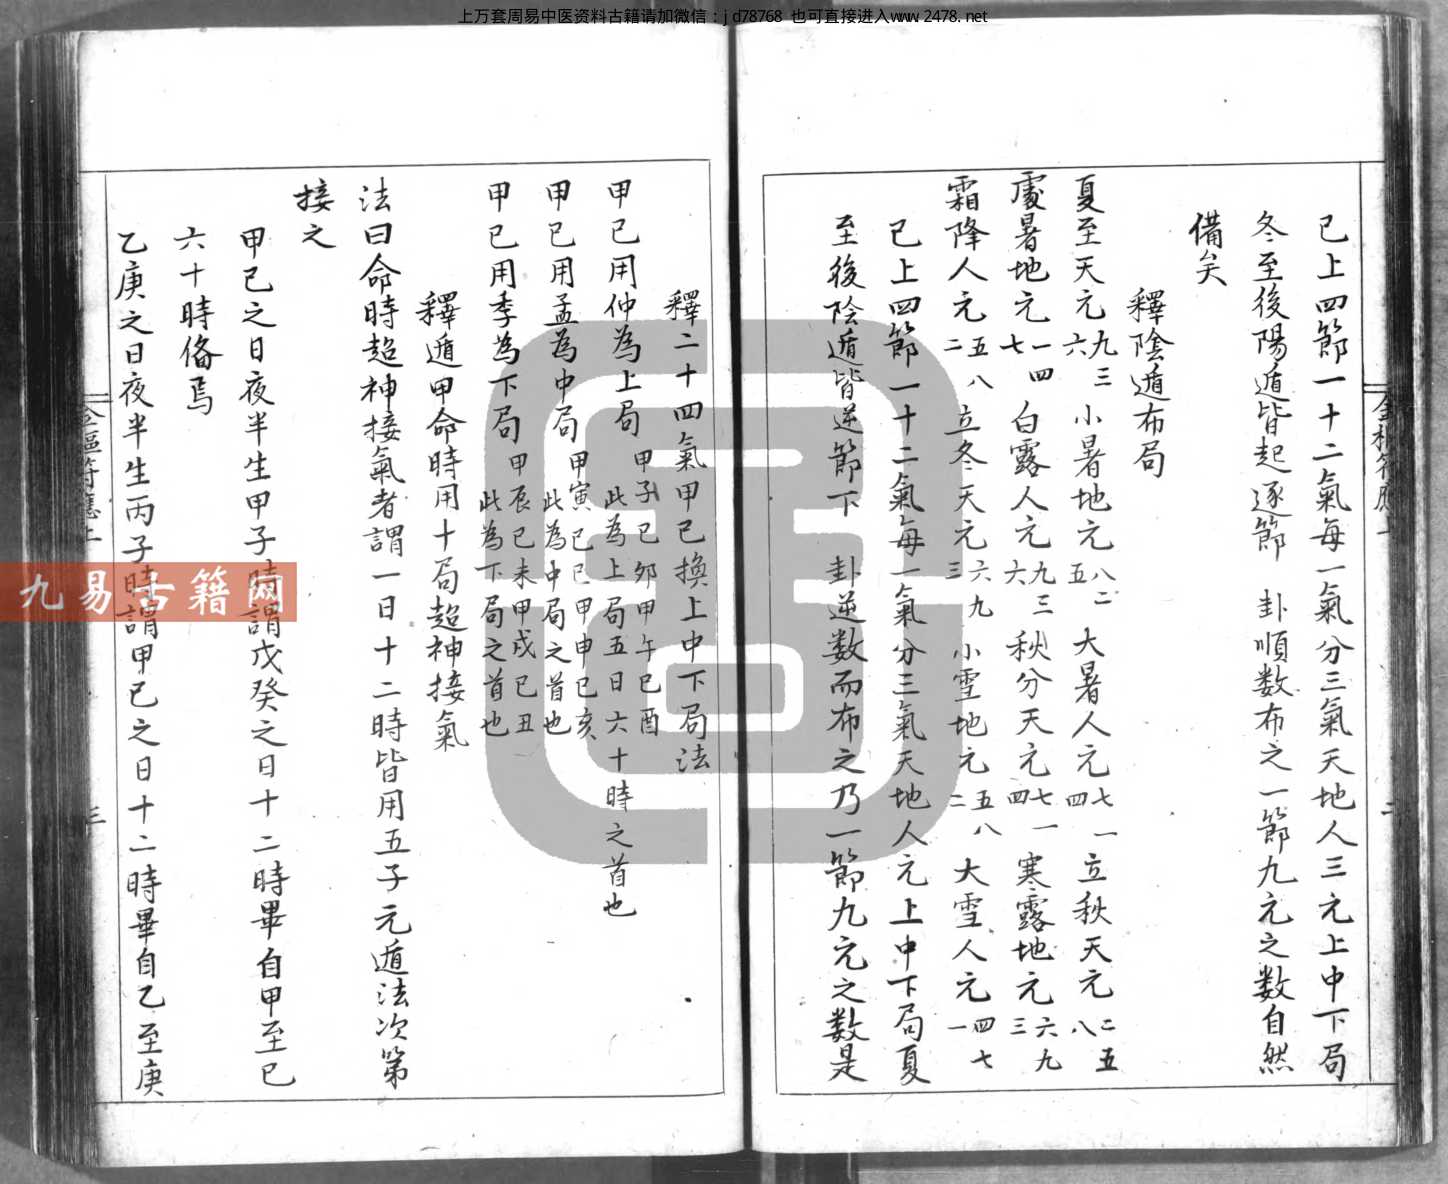 上万套周易中医资料古籍请加微信：jd78768 也可直接进入www.2478.net
已上四節一十二氣每一氣分三氣天地人三元上中下局
冬至後陽遁皆起逐節 卦順数布之一節九元之数自然
備矣
釋陰遁布局
夏至天元九三六 小暑地元八二五 大暑人元七一四 立秋天元二五八
處暑地元一四七 白露人元九三六 秋分天元七一四 寒露地元六九三
霜降人元五八二 立冬天元六九三 小雪地元五八二 大雪人元四七一
已上四節一十二氣每一氣分三氣天地人元上中下局夏
至後陰遁皆逆節下 卦逆数而布之乃一節九元之数是
釋二十四氣甲已換上中下局法
甲已用仲為上局 甲子已夘甲午已酉 此為上局五日六十時之首也
甲已用孟為中局 甲寅已巳甲申已亥 此為中局之首也
甲已用季為下局 甲辰已未甲戌已丑 此為下局之首也
釋遁甲命時用十局超神接氣
法曰命時超神接氣者謂一日十二時皆用五子元遁法次第
接之
甲已之日夜半生甲子時謂戊癸之日十二時畢自甲至已
六十時俻焉
乙庚之日夜半生丙子時謂甲已之日十二時畢自乙至庚
金樞符應上
二
三
九易古籍网